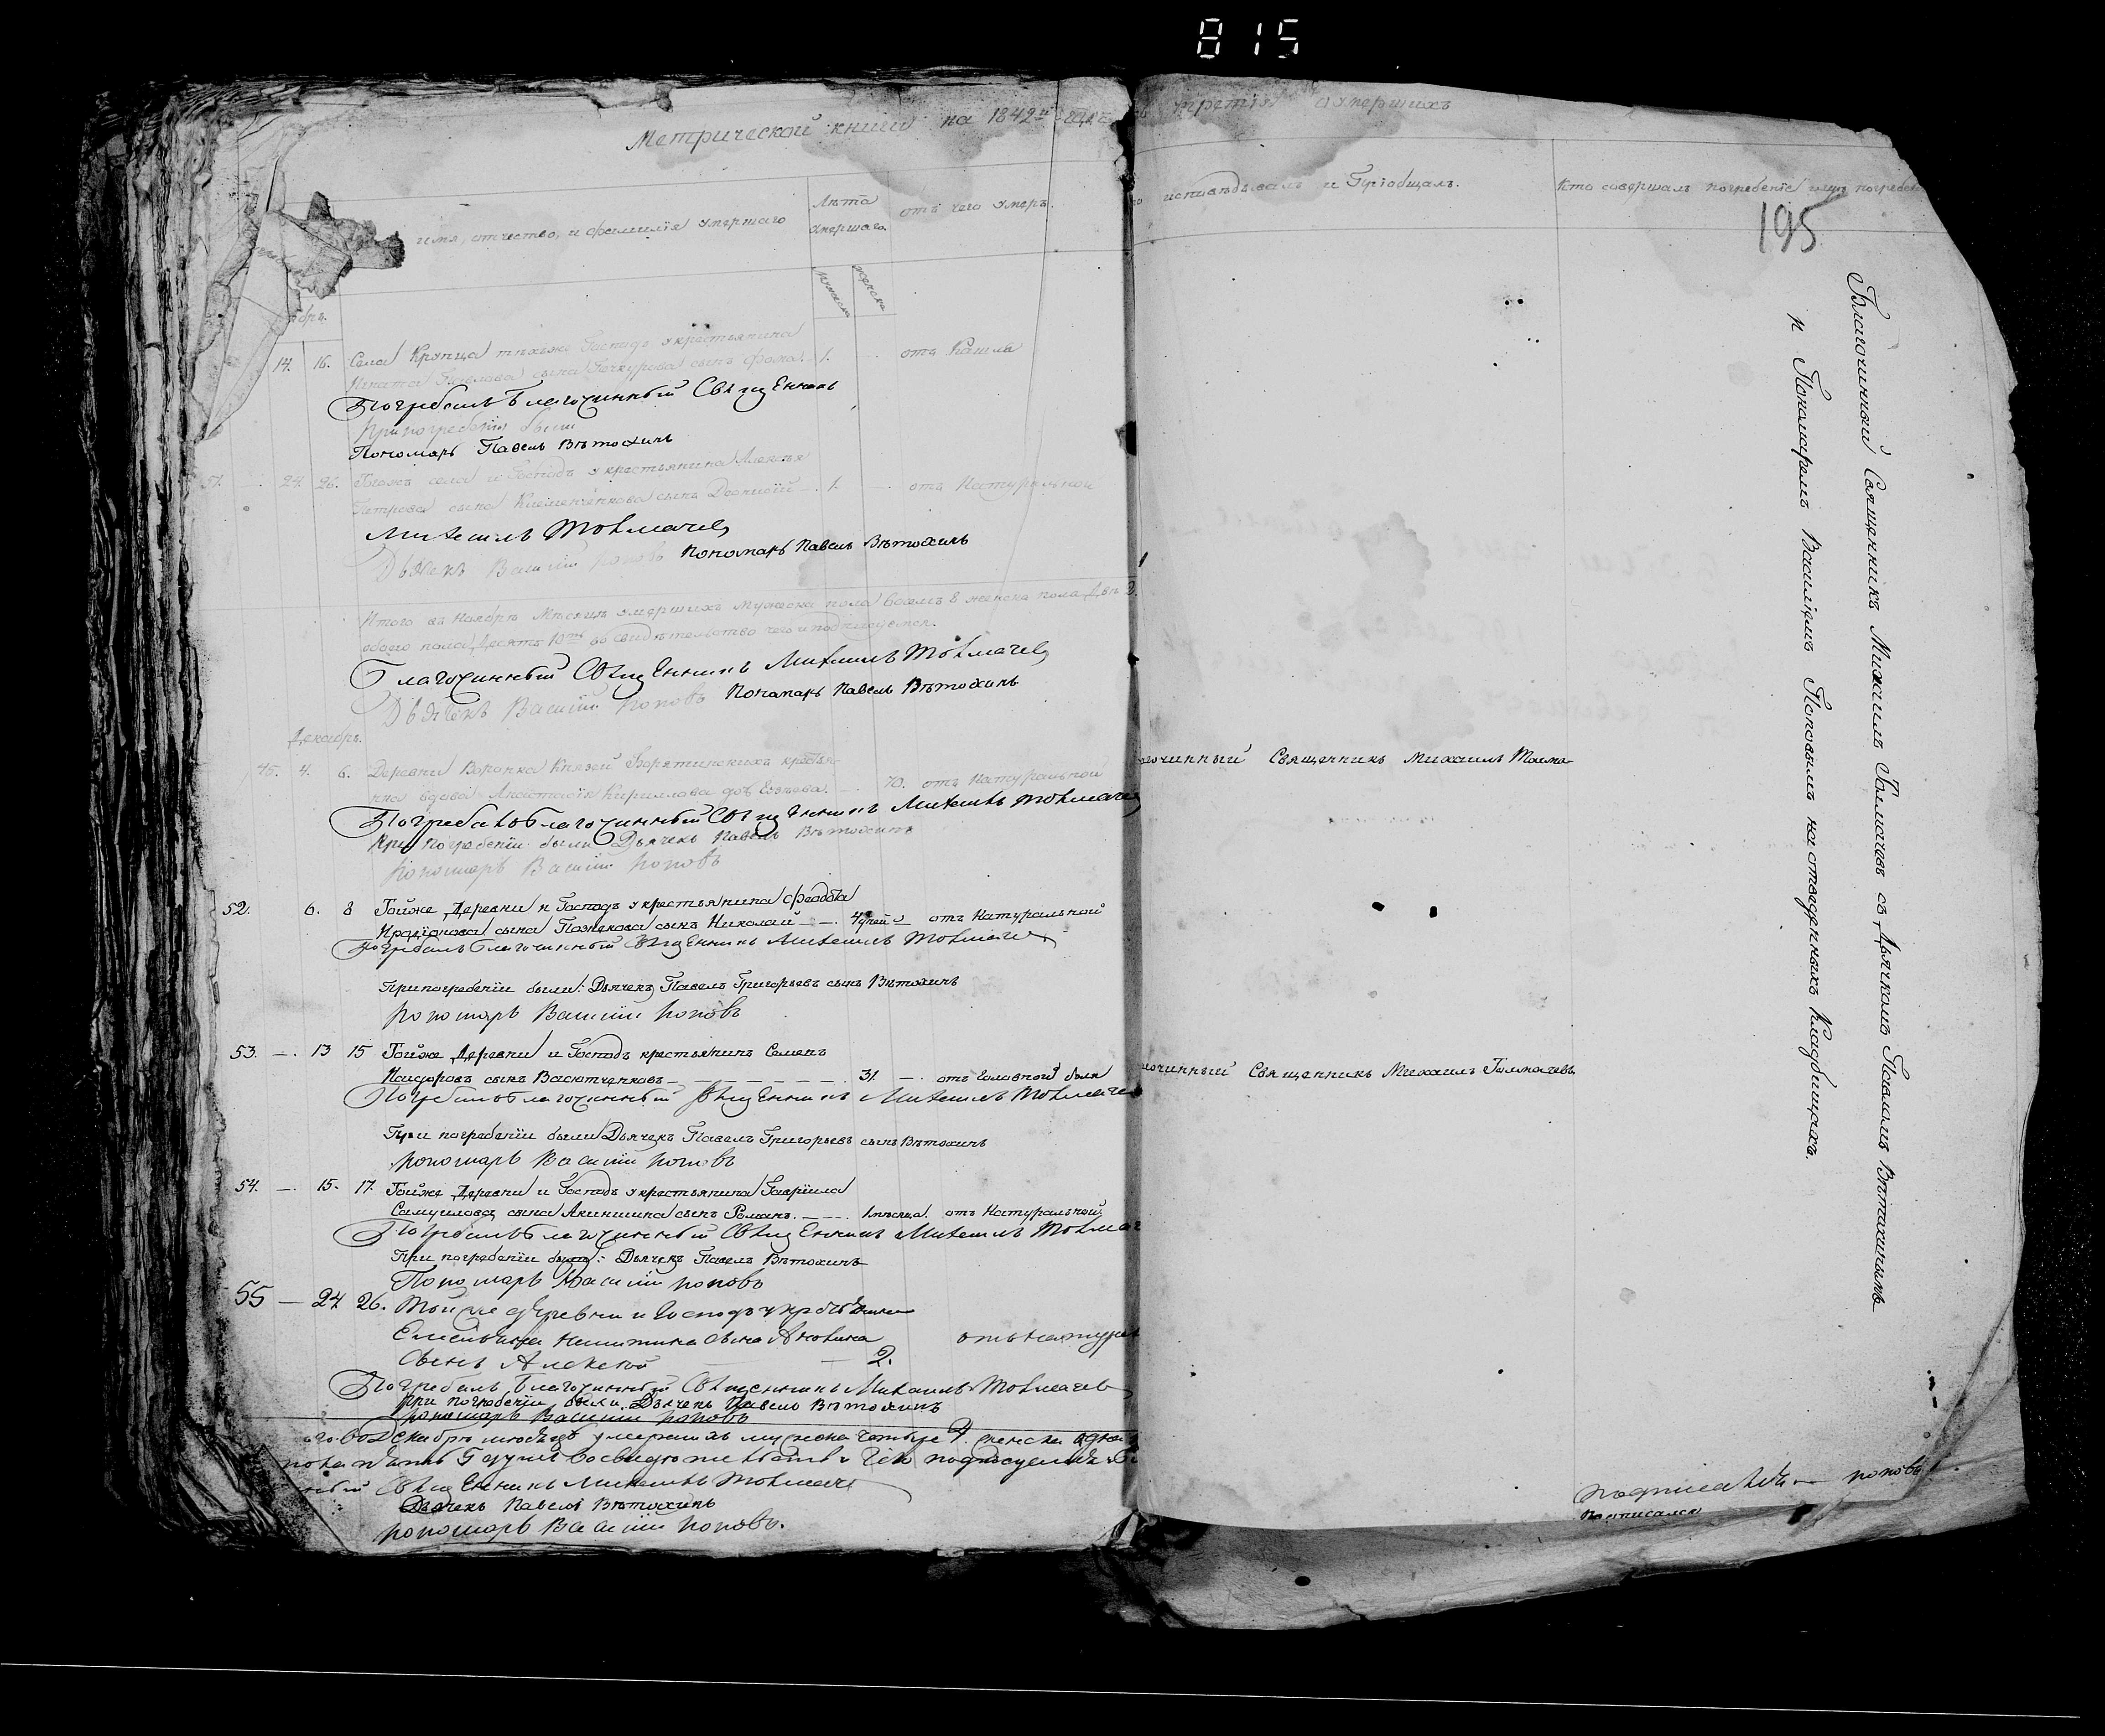 815
Метрической книги на 1842й
третія о умершихъ
имя, отчество, и фамилія умершаго
Лѣта умершаго.
отъ чего умеръ.
исповѣдывалъ и Пріобщалъ.
Кто совершалъ погребеніе и гдѣ погребены
195
14. 16. Села Крупца тѣхъже Господъ у крестьянина
сына сынъ Фома. 1. отъ Кашля
Погребалъ Благочинный Священникъ
При погребеніи были
Пономарь Павелъ Вѣтохинъ
51. 24. 26. села и Господъ у крестьянина Алексѣя
Петрова сына сынъ Діонисій 1. отъ Натуральной
Михаилъ Толмачев
Дьячекъ Василій Поповъ Пономарь Павелъ Вѣтохинъ
Итого въ Ноябрѣ Мѣсяцѣ умершихъ мужеска пола восемь 8 женска пола Двѣ 2.
обоего пола Десять 10ть во свидѣтельство чего и подписуемся.
Благочинный Священникъ Михаилъ Толмачев
Дьячекъ Василій Поповъ Пономарь Павелъ Вѣтохинъ
Декабрь.
4. 6. Деревни Воронка Князей Борятинскихъ крестьян-
ина вдова Анастасія Кириллова 70. отъ Натуральной
Погребалъ Благочинный Священникъ Михаилъ Толмачев
При погребеніи были Дьячекъ Павелъ Вѣтохинъ
Пономарь Василій Поповъ
очинный Священникъ Михаилъ Толма-
52. 6. 8 Тойже Деревни и Господъ у крестьянина Феодота
сына сынъ Николай 4 дней отъ Натуральной
Погребалъ Благочинный Священникъ Михаилъ Толмачев
При погребеніи были: Дьячекъ Павелъ Григорьевъ сынъ Вѣтохинъ
Пономарь Василій Поповъ
53. — 13 15 Тойже Деревни и Господъ крестьянинъ Семенъ
сынъ Васютченковъ 31. отъ Головной боли
Погребалъ Благочинный Священникъ Михаилъ Толмачев
очинный Священникъ Михаилъ Толмачевъ
При погребеніи были Дьячекъ Павелъ Григорьевъ сынъ Вѣтохинъ
Пономарь Василій Поповъ
54. — 15. 17. Тойже Деревни и Господъ у крестьянина Гавріила
Самуилова сына Акиншина сынъ Романъ. 1 мѣсяца. отъ Натуральной
Погребалъ Благочинный Священникъ Михаилъ Толмач
При погребеніи были: Дьячекъ Павелъ Вѣтохинъ
Пономарь Василій Поповъ
55 — 24 26. Тойже деревни и Господъ у крестьянина
Никитина сына
сынъ Алексей — 2. отъ натурал
Погребалъ Благочинный Священникъ Михаилъ Толмачев
При погребеніи были Дьячекъ Павелъ Вѣтохинъ
Пономарь Василій Поповъ
Декабрѣ умершихъ мужеска четыре 4. женска одна
пола пять 5 чего подписуемся
Священникъ Михаилъ Толмачев
Дьячекъ Павелъ Вѣтохинъ
Пономарь Василій Поповъ.
Благочинный Священникъ Михаилъ Толмачевъ съ Дьячкомъ Павломъ Вѣтохинымъ
и Пономаремъ Василіемъ Поповымъ на отведенныхъ Кладбищахъ.
Поповъ
Подписался